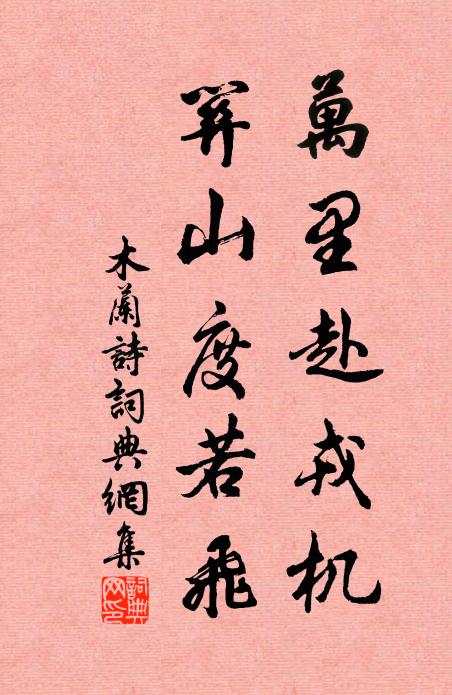 萬里赴戎机
関山度若飛
木蘭詩詞典網集
詞典网印